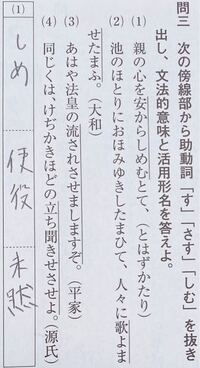 問三 次の傍線部から助動詞「す」「さす」「しむ」を抜き
出し、文法的意味と活用形名を答えよ。
(1) 親の心を安からしめむとて、（とはずがたり）
(2) 池のほとりにおほみゆきしたまひて、人々に歌よま
せたまふ。（大和）
(3) あはや法皇の流されさせましますぞ。（平家）
(4) 同じくは、けぢかきほどの立ち聞きせさせよ。（源氏）
(1)
しめ
使役
未然